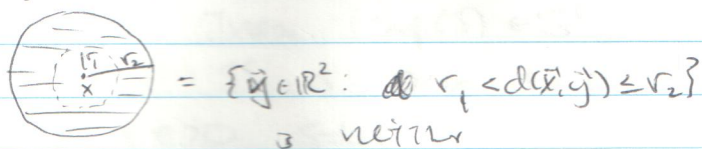 r₁ r₂
x
= {y⃗ ∈ ℝ² : r₁ < d(x⃗, y⃗) ≤ r₂}
is neither